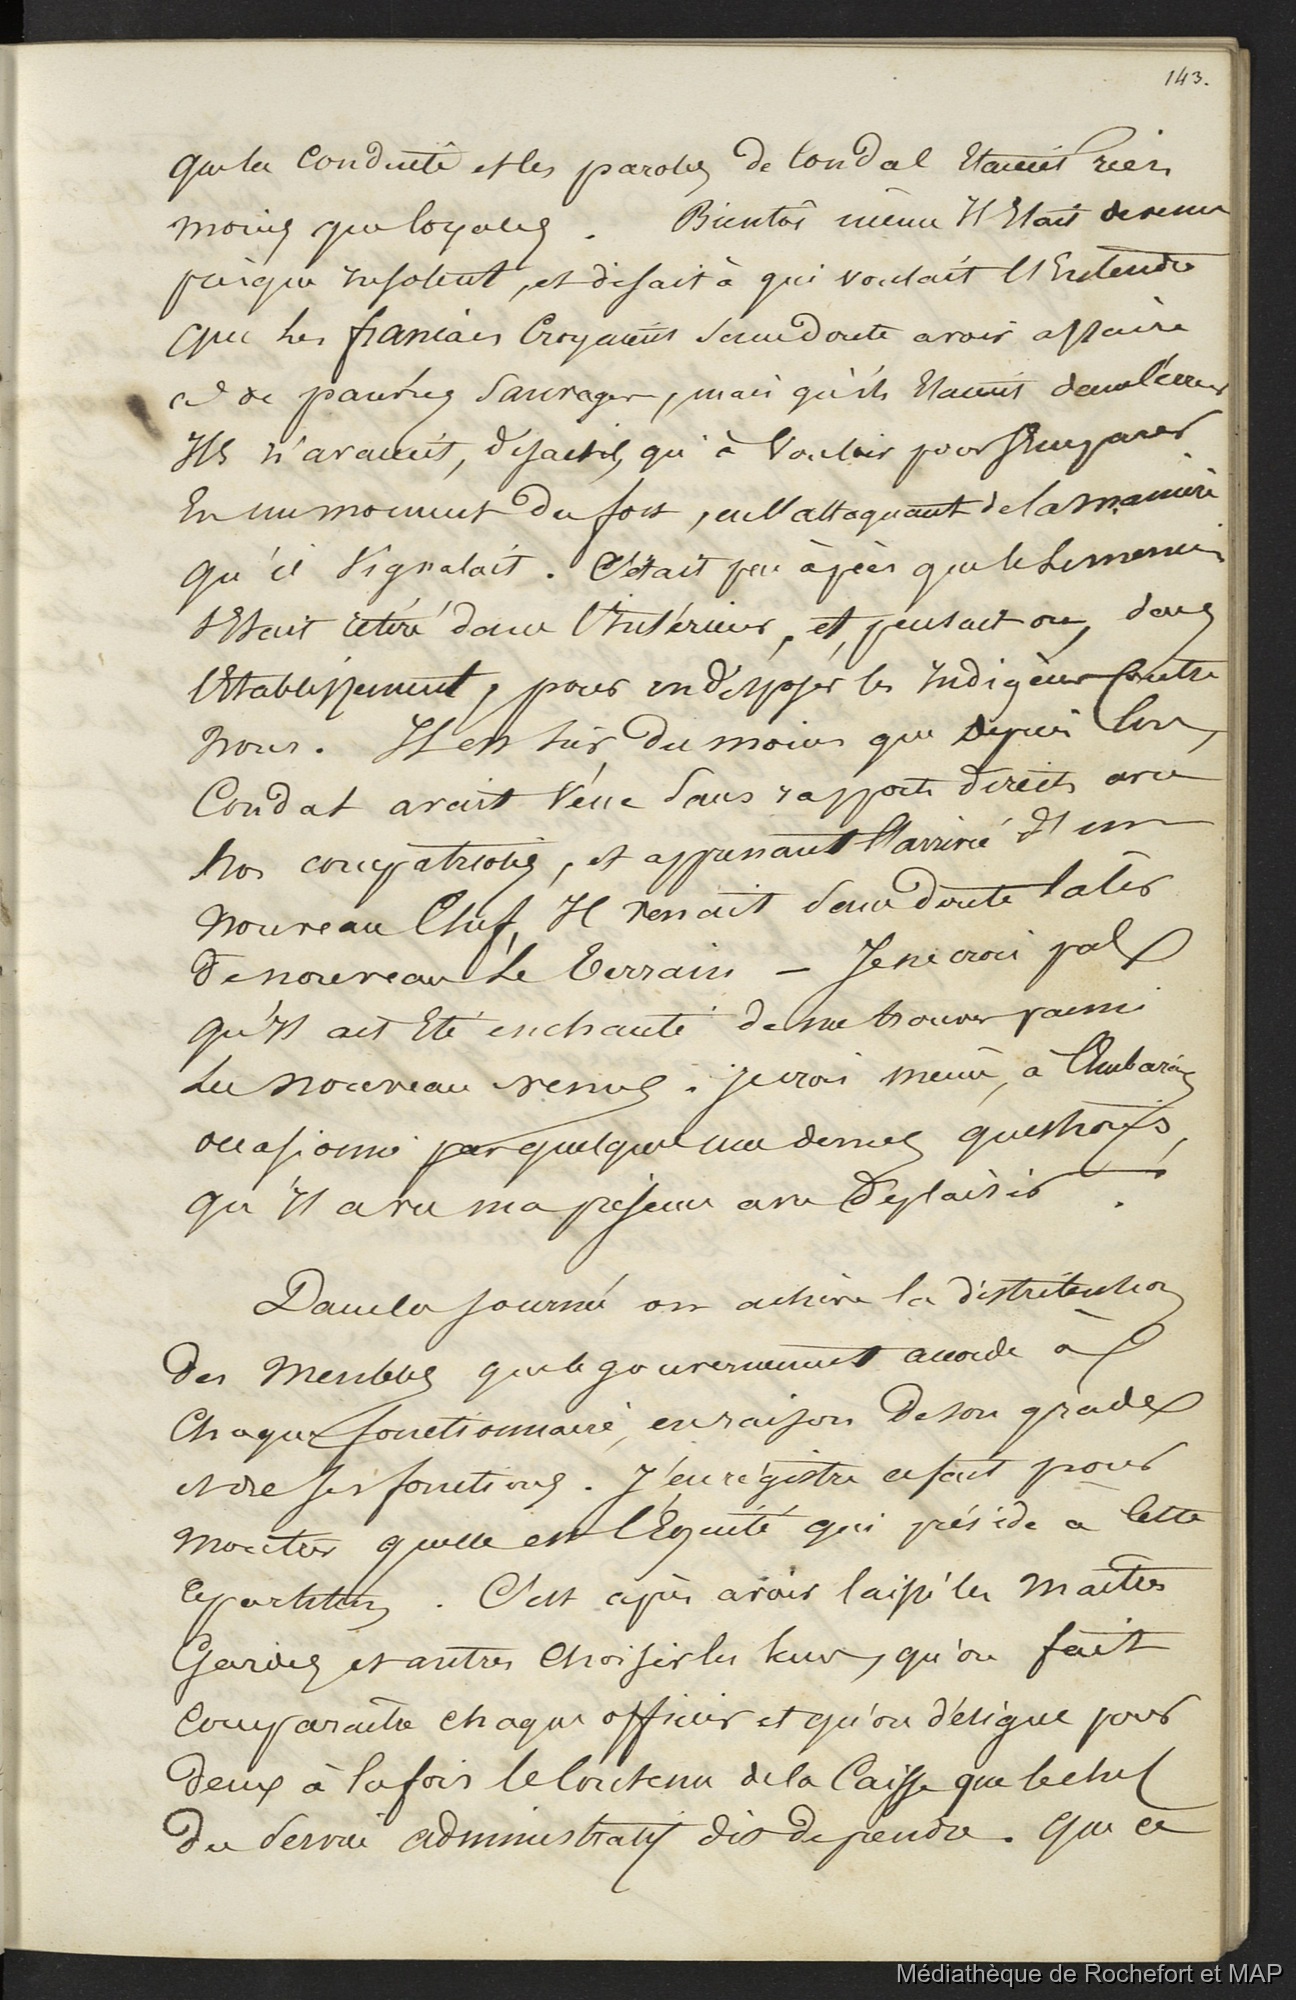 143.
que la Conduite et les paroles de Condal Etaient rien
moins que loyales. Bientôt même Il Etait devenu
presque insolent, et disait à qui voulait l'Entendre
que les francais Croyaient sans Doute avoir affaire
à de pauvres Sauvages, mais qu'ils Etaient dans l'erreur
Ils n'avaient, disait-il, qu'à Vouloir pour s'Emparer
En un moment du fort, en l'attaquant de la manière
qu'il Signalait. C'était peu après que le
s'Etait retiré dans l'Intérieur, et, pensait on, dans
l'Etablissement, pour indisposer les Indigènes Contre
nous. Il est sûr du moins que depuis lors,
Condal avait Vécu Sans rapports directs avec
nos compatriotes, et apprenant l'arrivée d'un
nouveau Chef, Il venait Sans Doute tâter
De nouveau le Terrain — Je ne crois pas
qu'Il ait Eté enchanté de me trouver parmi
les nouveau venus. je crois même, à l'Embaras
occasionné par quelques unes de mes questions,
qu'Il a vu ma présence avec Déplaisir.
Dans la Journée on achève la distribution
Des Meubles que le gouvernement accorde à
Chaque fonctionnaire, en raison De son grade
et de ses fonctions. J'enrégistre ce fait pour
montrer quelle est l'Equité qui préside à Cette
répartition. C'est après avoir laissé les Maitres
Gardes et autres Choisir les leurs, qu'on fait
Comparaitre chaque officier et qu'on désigne pour
Deux à la fois le Contenu de la Caisse que le chef
Du Service administratif dit dépendre. Que ce
Médiathèque de Rochefort et MAP